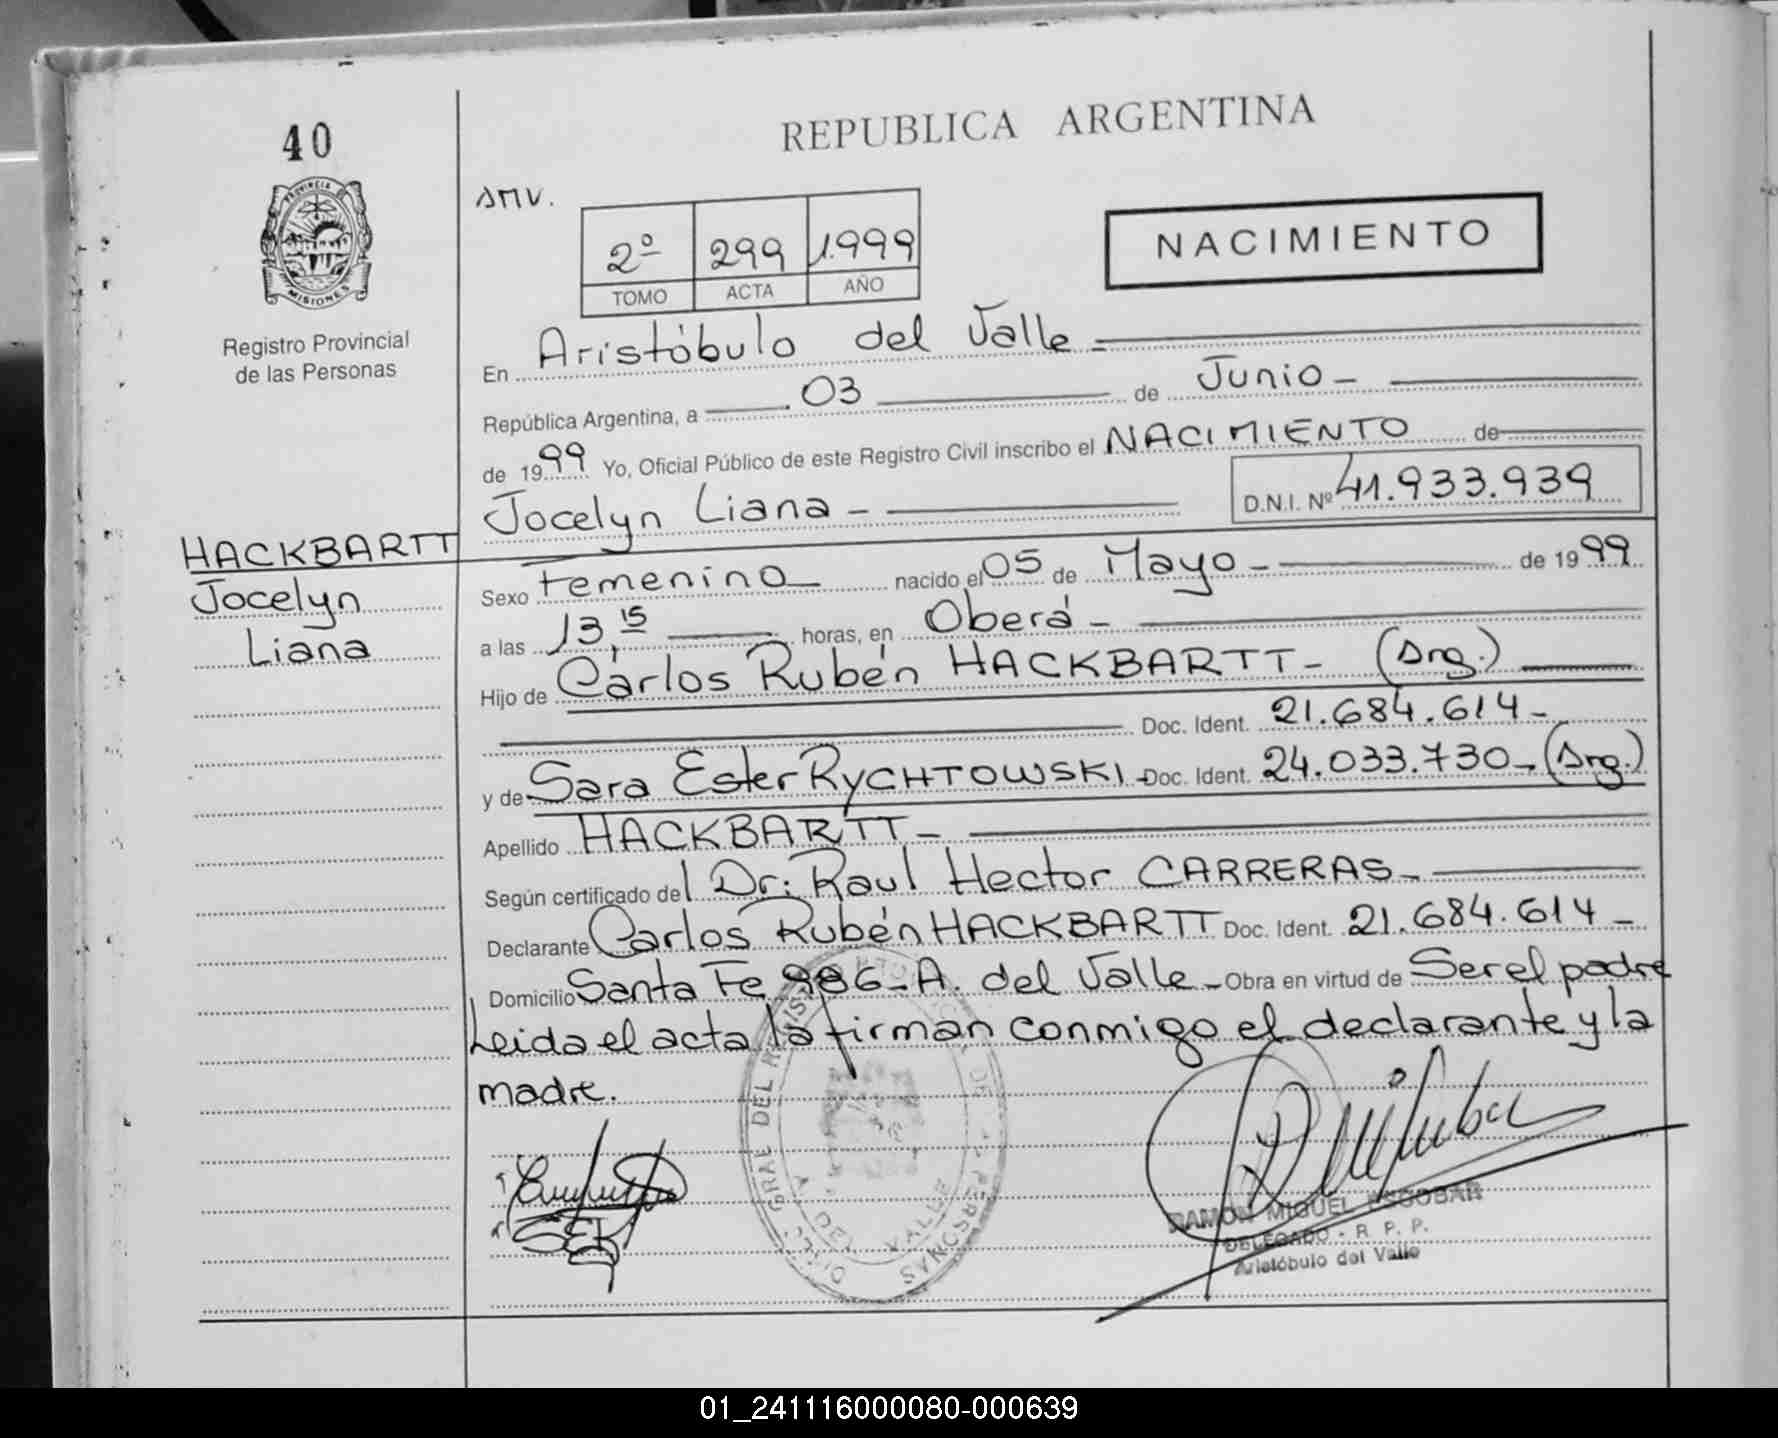 40
PROVINCIA
MISIONES
Registro Provincial
de las Personas
HACKBARTT
Jocelyn
Liana
REPUBLICA ARGENTINA
2º 299 1.999
TOMO ACTA AÑO
NACIMIENTO
En Aristóbulo del Valle -
República Argentina, a 03 de Junio -
de 1999 Yo, Oficial Público de este Registro Civil inscribo el NACIMIENTO de
Jocelyn Liana - D.N.I. Nº 41.933.939
Sexo Femenino - nacido el 05 de Mayo - de 1999.
a las 13,15 horas, en Oberá -
Hijo de Carlos Rubén HACKBARTT - (Arg.)
Doc. Ident. 21.684.614 -
y de Sara Ester RYCHTOWSKI - Doc. Ident. 24.033.730 - (Arg.)
Apellido HACKBARTT -
Según certificado del Dr: Raul Hector CARRERAS -
Declarante Carlos Rubén HACKBARTT Doc. Ident. 21.684.614 -
Domicilio Santa Fe 986 - A. del Valle - Obra en virtud de Ser el padre
Leida el acta la firman conmigo el declarante y la
madre.
RAMON MIGUEL ESCOBAR
DELEGADO - R. P. P.
Aristóbulo del Valle
01_241116000080-000639